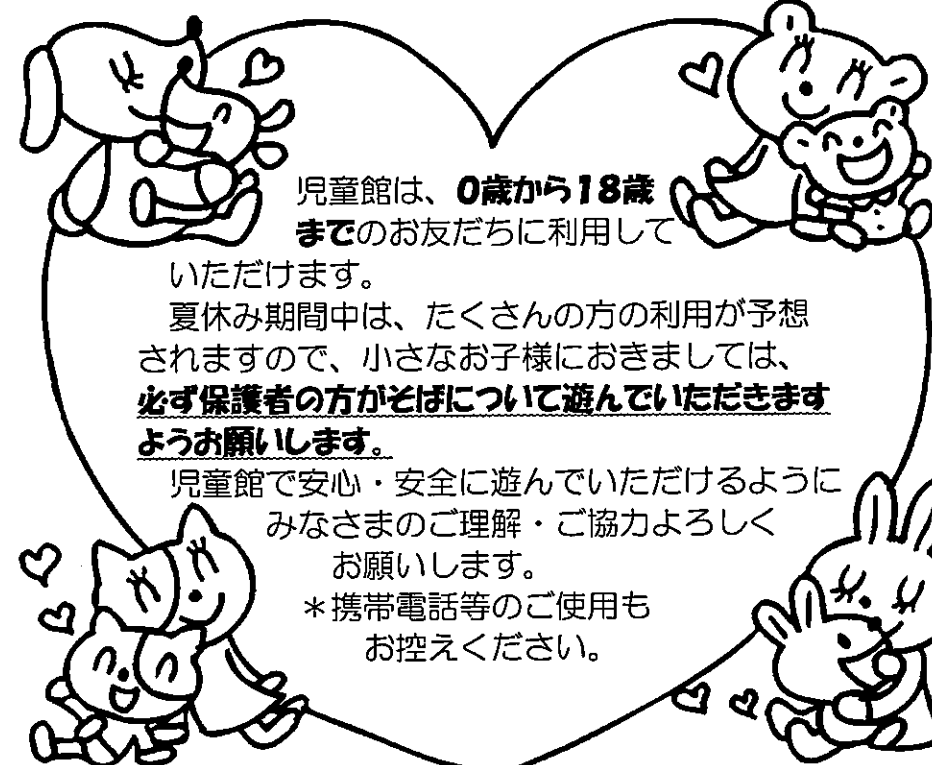 児童館は、0歳から18歳
までのお友だちに利用して
いただけます。
夏休み期間中は、たくさんの方の利用が予想
されますので、小さなお子様におきましては、
必ず保護者の方がそばについて遊んでいただきます
ようお願いします。
児童館で安心・安全に遊んでいただけるように
みなさまのご理解・ご協力よろしく
お願いします。
*携帯電話等のご使用も
お控えください。